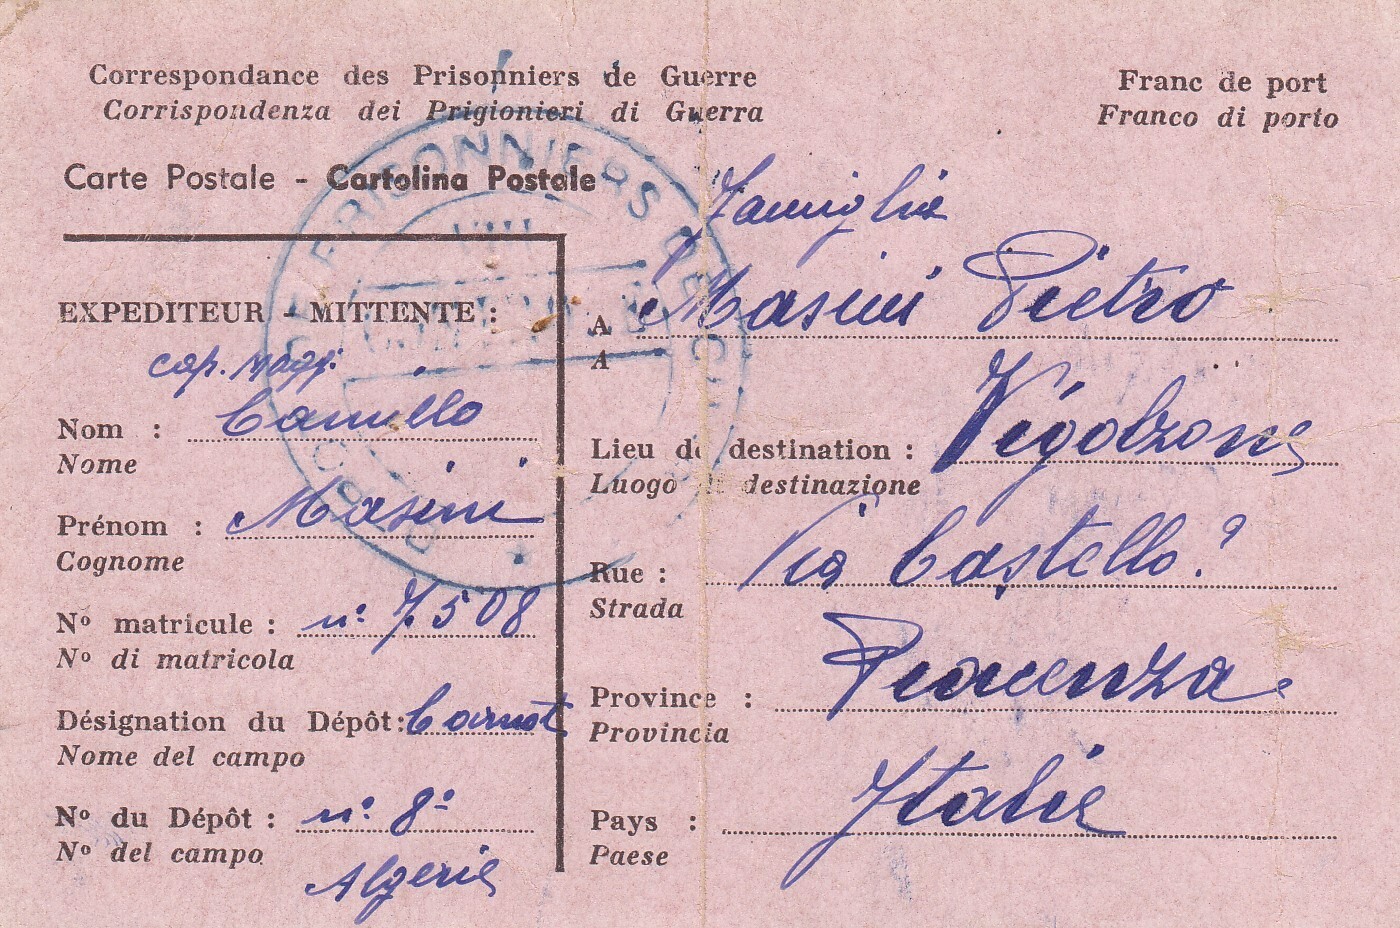 Correspondance des Prisonniers de Guerre
Corrispondenza dei Prigionieri di Guerra
Franc de port
Franco di porto
Carte Postale - Cartolina Postale
EXPEDITEUR - MITTENTE :
cap. magg.
Nom : Camillo
Nome
Prénom : Masini
Cognome
Nº matricule : n: 7508
Nº di matricola
Désignation du Dépôt: Carnot
Nome del campo
Nº du Dépôt : n: 8:
Nº del campo
Algerie
Famiglia
A Masini Pietro
A
Lieu de destination : Vigolzone
Luogo di destinazione
Rue : Via Castello.
Strada
Province : Piacenza
Provincia
Pays : Italie
Paese
PRISONNIERS DE GU